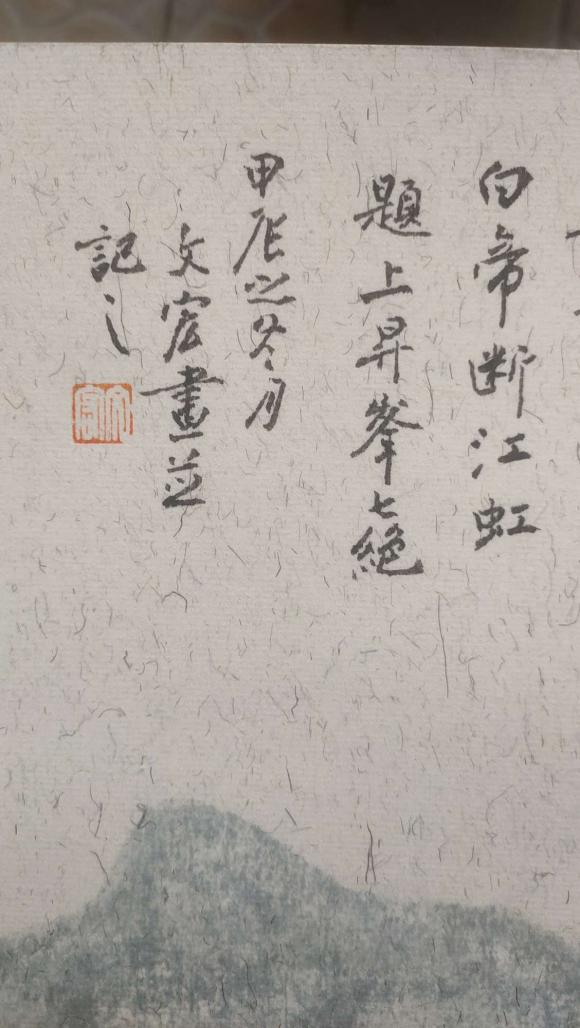 白帝断江虹
題上昇峯七絕
甲辰之冬月
文宏畫並
記之